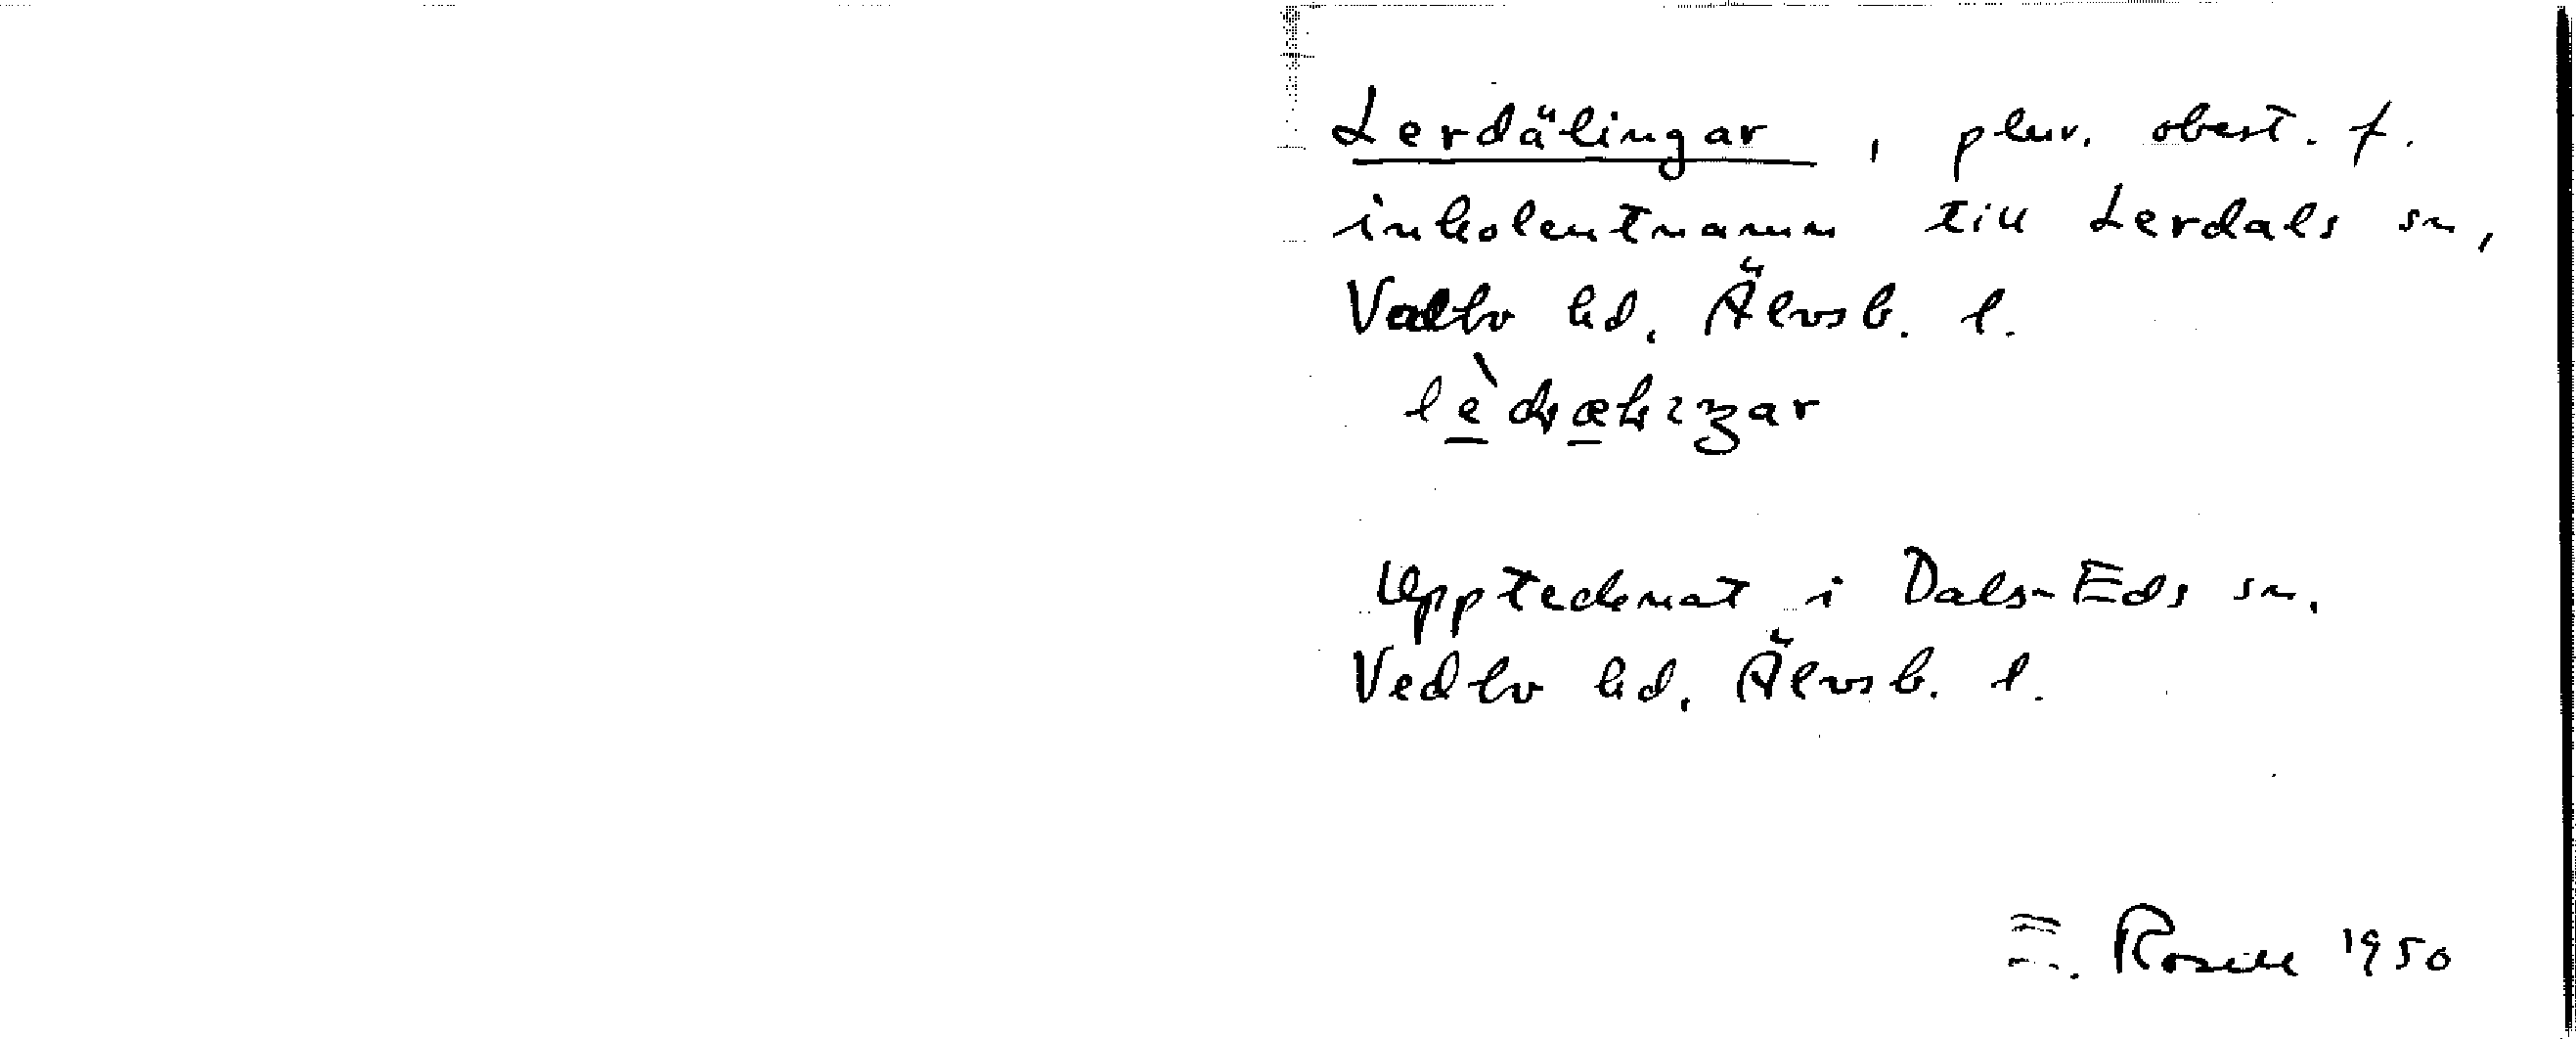 Lerdälingar, plur. obest. f.
inkolentnamn till Lerdals sn,
Valbo hd, Älvsb. l.
Upptecknat i Dals-Eds sn.
Vedbo hd, Älvsb. l.
E. Rosell 1950